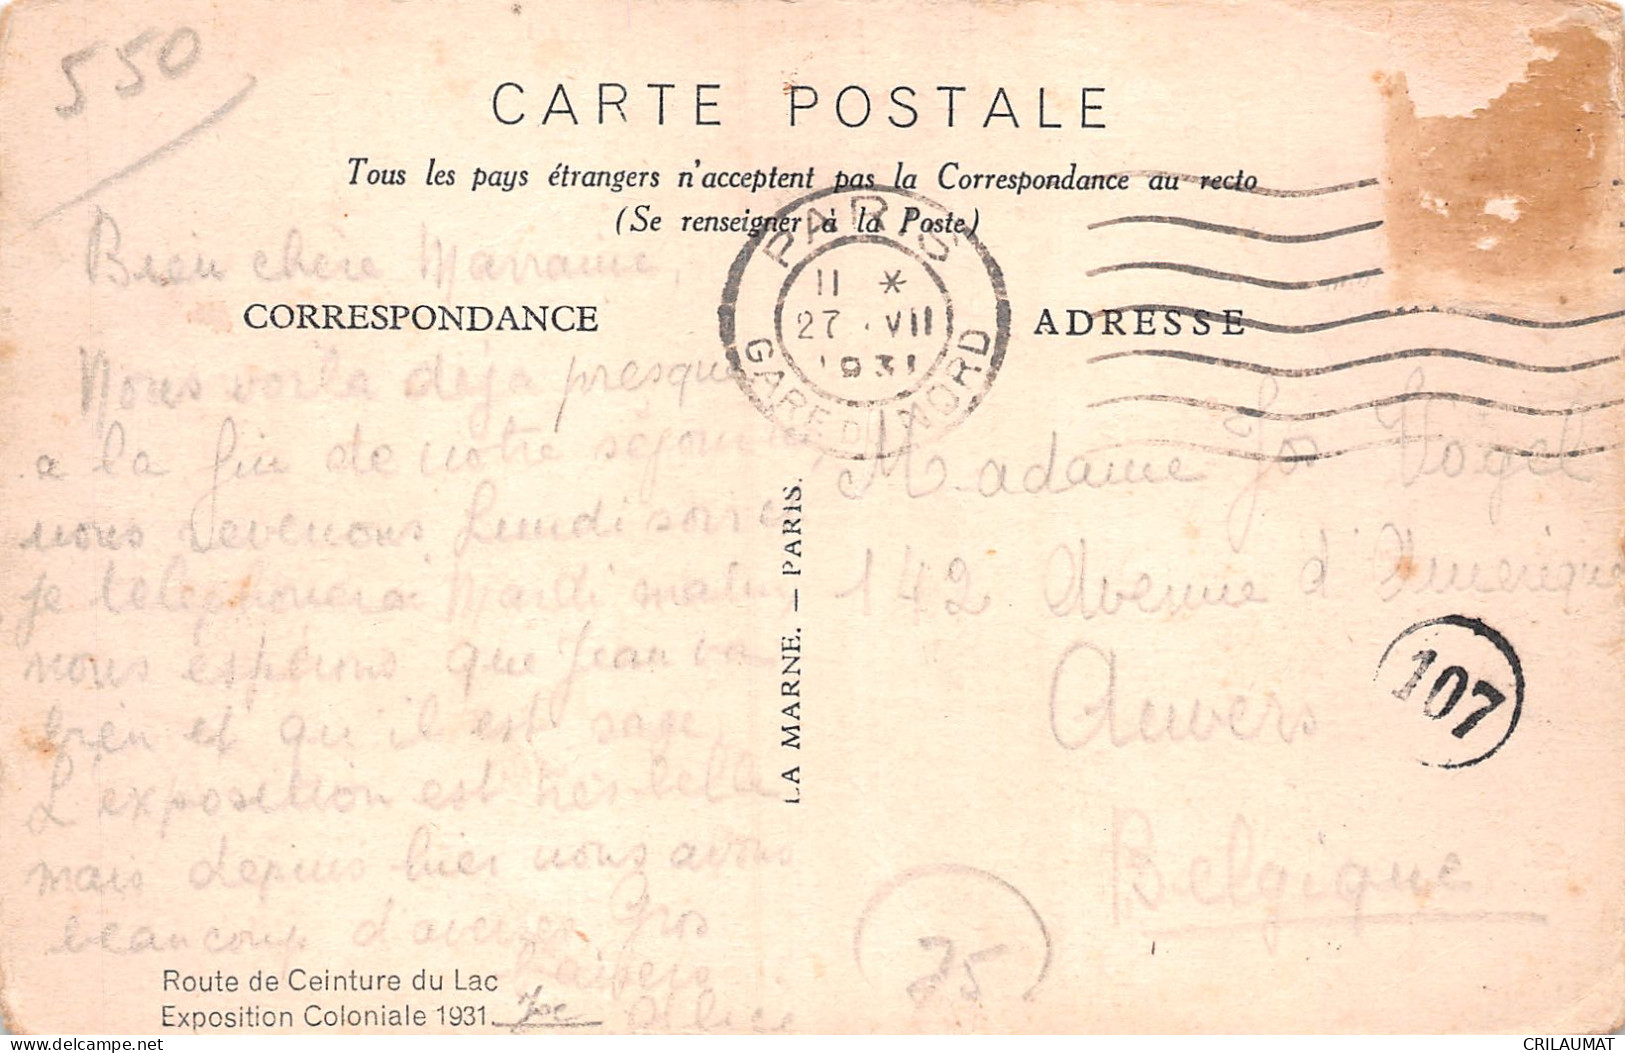 550
CARTE POSTALE
Tous les pays étrangers n'acceptent pas la Correspondance au recto
(Se renseigner à la Poste)
PARIS
11 *
27 . VII
1931
GARE DU NORD
CORRESPONDANCE
ADRESSE
Bien chère Marraine,
Nous voila déjà presque
a la fin de notre séjour
nous revenons Lundi soir
je telephonerai Mardi matin
nous espérons que Jean va
bien et qu'il est sage.
L'exposition est très belle
mais depuis hier nous avons
beaucoup d'averses Gros
Baisers
Alice
Joe
LA MARNE. — PARIS.
Madame Jos Vogel
142 Avenue d'Amérique
Anvers
Belgique
107
75
Route de Ceinture du Lac
Exposition Coloniale 1931.
delcampe.net
CRILAUMAT